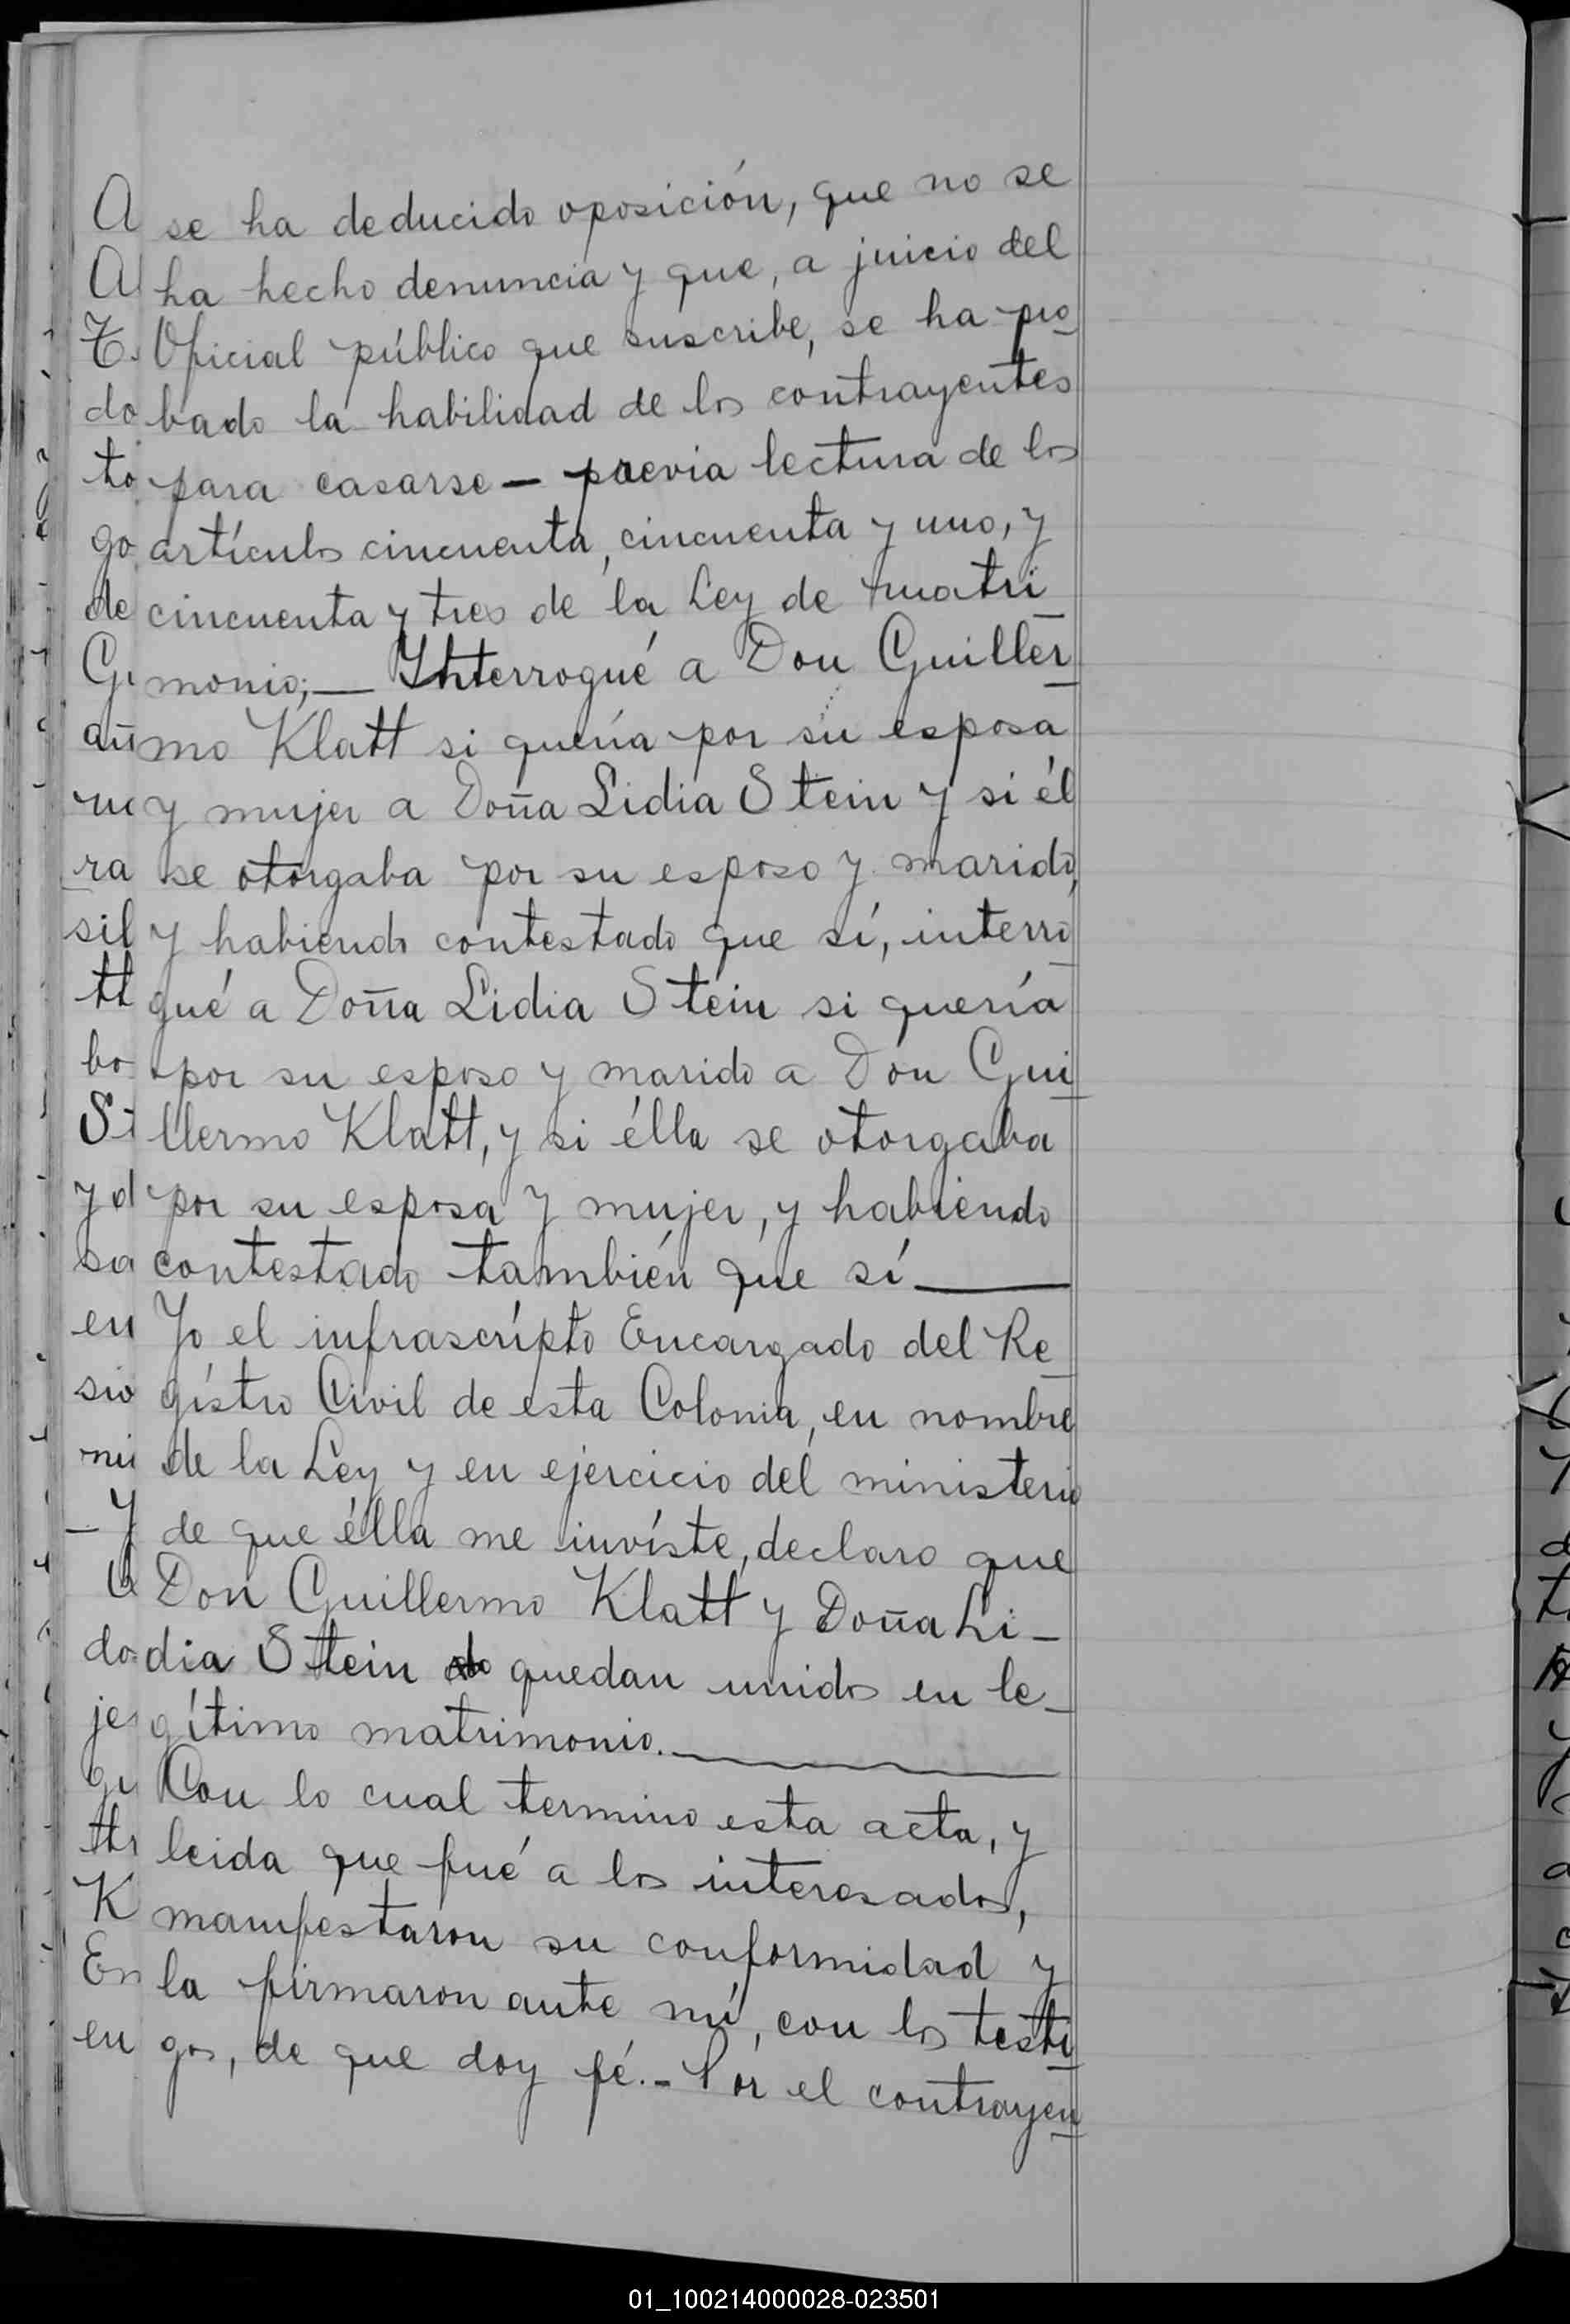 se ha deducido oposición, que no se
ha hecho denuncia y que, a juicio del
Oficial público que suscribe, se ha pro
bado la habilidad de los contrayentes
para casarse — previa lectura de los
artículos cincuenta, cincuenta y uno, y
cincuenta y tres de la Ley de matri
monio; — Interrogué a Don Guiller
mo Klatt si quería por su esposa
y mujer a Doña Lidia Stein y si él
se otorgaba por su esposo y marido,
y habiendo contestado que sí, interro
gué a Doña Lidia Stein si quería
por su esposo y marido a Don Gui
llermo Klatt, y si élla se otorgaba
por su esposa y mujer, y habiendo
contestado también que sí —
Yo el infrascrípto Encargado del Re
gistro Civil de esta Colonia, en nombre
de la Ley y en ejercicio del ministerio
de que élla me invíste, declaro que
Don Guillermo Klatt y Doña Li-
dia Stein quedan unidos en le-
gítimo matrimonio. —
Con lo cual termino esta acta, y
leida que fué a los interesados,
manifestaron su conformidad y
la firmaron ante mí, con los testi
gos, de que doy fé.- Por el contrayen
01_100214000028-023501